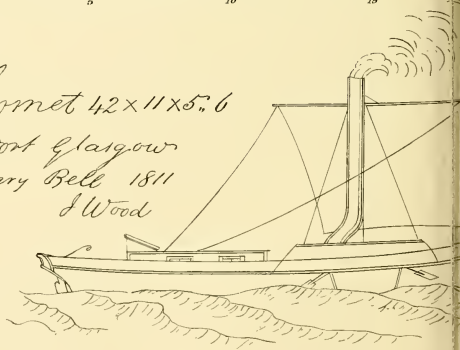 5 10 15
omet 42 x 11 x 5.. 6
ort Glasgow
ry Bell 1811
J Wood